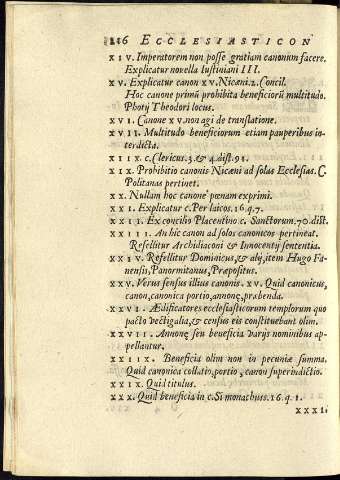 216 ECCLESIASTICON
XIV. Imperatorem non posse gratiam canonum facere.
Explicatur novella Iustiniani III.
XV. Explicatur canon XV. Nicæni. 2. Concil.
Hoc canone primū prohibita beneficiorū multitudo.
Photij Theodori locus.
XVI. Canone XV. non agi de translatione.
XVII. Multitudo beneficiorum etiam pauperibus in-
terdicta.
XIIX. c. Clericus. 3. & 4. dist. 91.
XIX. Prohibitio canonis Nicæni ad solas Ecclesias. C.
Politanas pertinet.
XX. Nullam hoc canone pœnam exprimi.
XXI. Explicatur c. Per laicos. 16. q. 7.
XXII. Ex concilio Placentino c. Sanctorum. 70. dist.
XXIII. An hic canon ad solos canonicos pertineat.
Refellitur Archidiaconi & Innocentij sententia.
XXIV. Refellitur Dominicus, & alij, item Hugo Fa-
nensis, Panormitanus, Præpositus.
XXV. Verus sensus illius canonis. XV. Quid canonicus,
canon, canonica portio, annonæ, præbenda.
XXVI. Ædificatores ecclesiasticorum templorum quo
pacto vectigalia, & census eis constituebant olim.
XXVII. Annonæ seu beneficia varijs nominibus ap-
pellantur.
XXIIX. Beneficia olim non in pecuniæ summa.
Quid canonica collatio, portio, canon superindictio.
XXIX. Quid titulus.
XXX. Quid beneficia in c. Si monachus. 16. q 1.
XXXI.